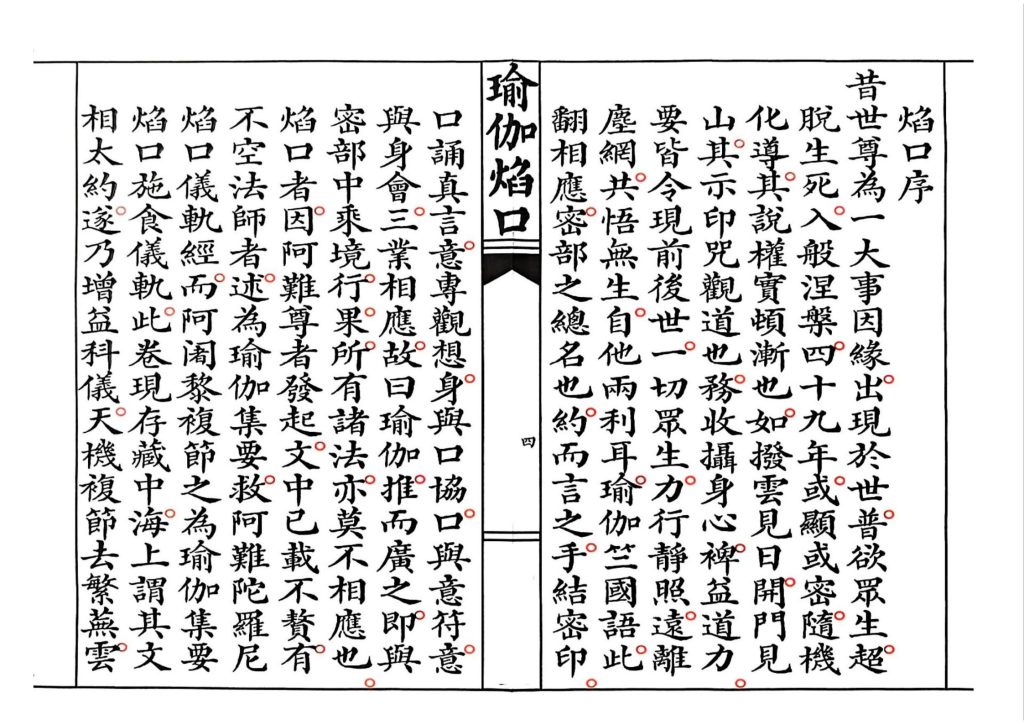 焰口序
昔世尊為一大事因緣。出現於世。普欲眾生超
脫生死。入般涅槃。四十九年。或顯或密。隨機
化導。其說權實頓漸也。如撥雲見日。開門見
山。其示印咒觀道也。務收攝身心。裨益道力。
要皆令現前後世。一切眾生。力行靜照。遠離
塵網。共悟無生。自他兩利耳。瑜伽竺國語。此
翻相應。密部之總名也。約而言之。手結密印。
瑜伽焰口
四
口誦真言。意專觀想。身與口協。口與意符。意
與身會。三業相應。故曰瑜伽。推而廣之。即與
密部中乘境。行。果。所有諸法。亦莫不相應也。
焰口者。因阿難尊者發起。文中已載不贅。有
不空法師者。述為瑜伽集要。救阿難陀羅尼
焰口儀軌經。而阿闍黎複節之為瑜伽集要
焰口施食儀軌。此卷現存藏中。海上謂其文
相太約。遂乃增益科儀。天機複節去繁蕪。雲